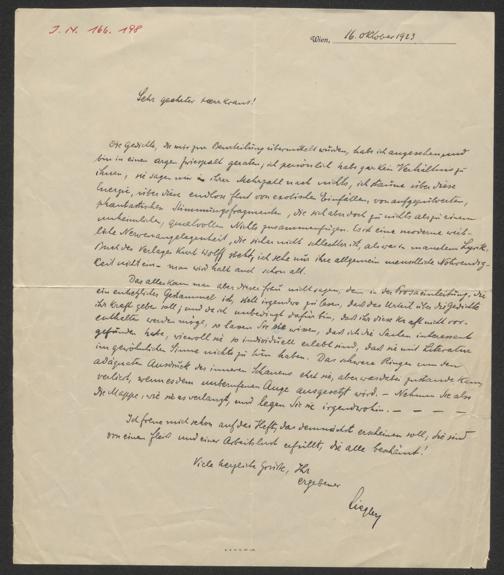 J. N. 166.198
Wien, 16. Oktober 1923
Sehr geehrter Herr Kraus!
Die Gedichte, die mir zur Beurteilung übermittelt wurden, habe ich angesehen, und
bin in einen argen Zwiespalt geraten; ich persönlich habe gar kein Verhältnis zu
ihnen; sie sagen mir in ihrer Mehrzahl nach nichts, ich staune über diese
Energie, über diese endlose Flut von exotischen Einfällen, von aufgepulverten,
phantastischen Stimmungsfragmenten, die sich aber doch zu nichts als zu einem
unheimlichen, qualvollen Nichts zusammenfügen. Es ist eine moderne weib-
liche Nervenangelegenheit, die sicher nicht schlechter ist, als was in manchem Lyrik-
Buch des Verlages Kurt Wolff steht, ich sehe nur ihre allgemein menschliche Notwendig-
keit nicht ein – man wird halt auch schon alt.
Das alles kann man aber dieser Frau nicht sagen, denn in der Prosaeinleitung, die
ein entsetzliches Gestammel ist, steht irgendwo zu lesen, dass das Urteil über die Gedichte
ihr Kraft geben soll; und da ich unbedingt dafür bin, dass ihr diese Kraft nicht vor-
enthalten werden möge, so lassen Sie sie wissen, dass ich die Sachen interessant
gefunden habe, wiewohl sie so individuell erlebt sind, dass sie mit Literatur
im gewöhnlichen Sinne nichts zu tun haben. Das schwere Ringen um den
adäquaten Ausdruck des inneren Schauens ehrt sie, aber was dabei zustande kam,
verliert, wenn es dem unberufenen Auge ausgesetzt wird. – Nehmen Sie also
die Mappe, wie sie es verlangt, und legen Sie sie irgendwohin. – – – –
Ich freue mich schon auf das Heft, das demnächst erscheinen soll, die sind
von einem Fleiß und einer Arbeitslust erfüllt, die alle beschämt!
Viele herzliche Grüße, Ihr
ergebener
Liegler